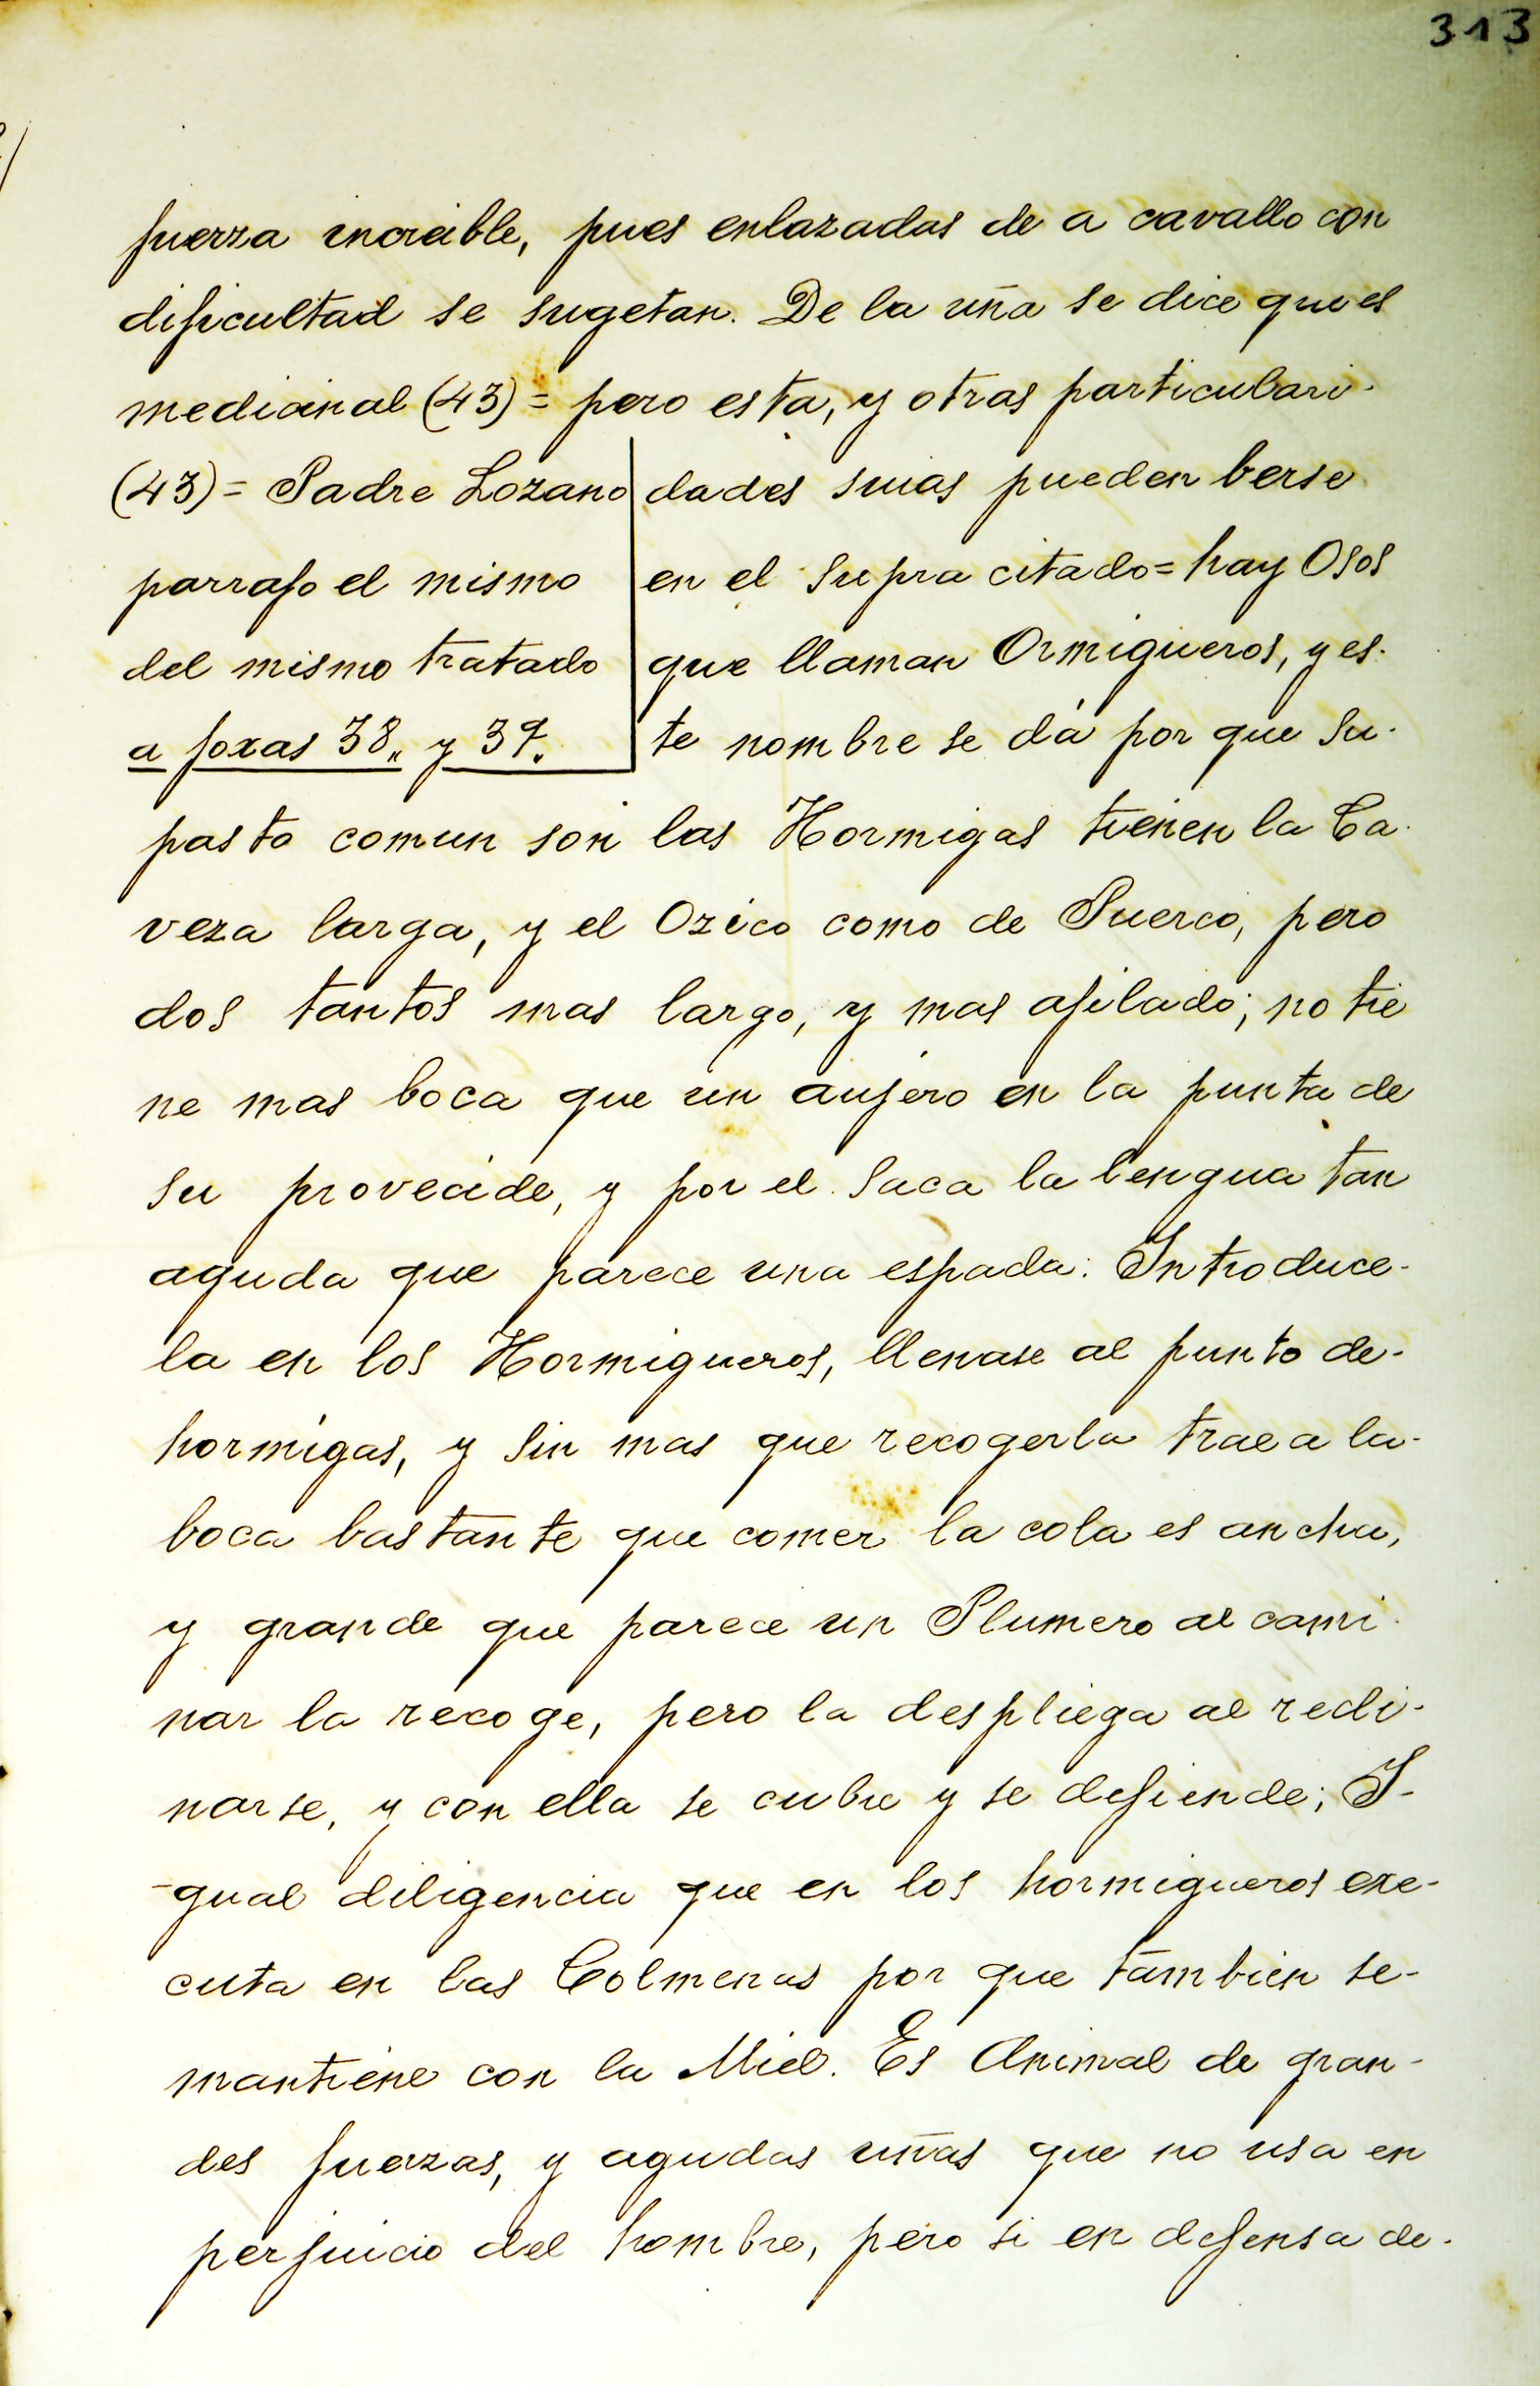 313
fuerza increible, pues enlazadas de a cavallo con
dificultad se sugetan. De la uña se dice que es
medicinal (43) = pero esta, y otras particulari-
(43) = Padre Lozano
parrafo el mismo
del mismo tratado
a foxas 38,, y 39.
dades suias pueden berse
en el supra citado = hay Osos
que llaman Ormigueros, y es-
te nombre se dá por que su-
pasto comun son las Hormigas tienen la Ca-
veza larga, y el Ozico como de Puerco, pero
dos tantos mas largo, y mas afilado; no tie
ne mas boca que un aujero en la punta de
su provecide, y por el saca la lengua tan
aguda que parece una espada: Introduce-
la en los Hormigueros, llenase al punto de-
hormigas, y sin mas que recogerla trae a la-
boca bastante que comer la cola es ancha,
y grande que parece un Plumero al cami-
nar la recoge, pero la despliega al recli-
narse, y con ella se cubre y se defiende; I-
-gual diligencia que en los hormigueros exe-
cuta en las Colmenas por que tambien se-
mantiene con la Miel. Es Animal de gran-
des fuerzas, y agudas uñas que no usa en
perjuicio del hombre, pero si en defensa de-